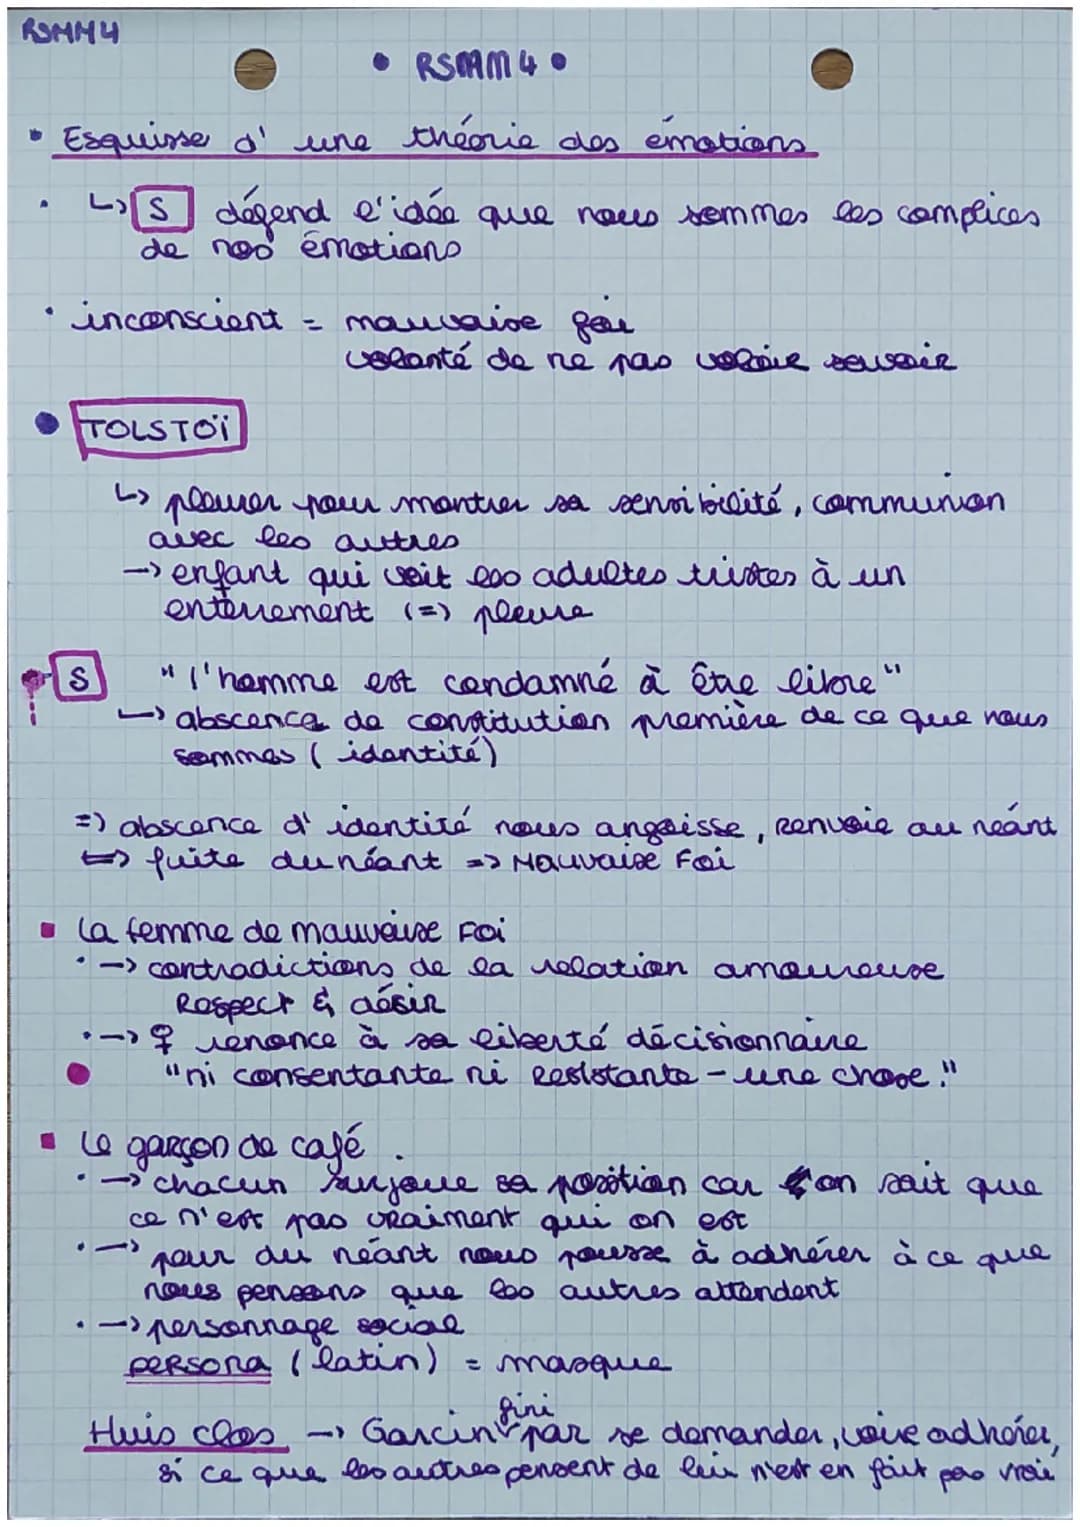 RSMM4
• RSMM4 •
• Esquisse d'une théorie des émotions
• ↳ S défend l'idée que nous sommes les complices
de nos émotions
• inconscient = mauvaise foi
volonté de ne pas voloir savoir
• TOLSTOÏ
↳ pleurer pour montrer sa sensibilité, communion
avec les autres
→ enfant qui voit les adultes tristes à un
enterrement (=) pleure
S "l'homme est condamné à être libre"
↳ abscence de constitution première de ce que nous
sommes (identité)
=> abscence d'identité nous angoisse, renvoie au néant
⟺ fuite du néant => Mauvaise Foi
▪ La femme de mauvaise Foi
• → contradictions de la relation amoureuse
Respect & désir
• → ♀ renonce à sa liberté décisionnaire
• "ni consentante ni resistante - une chose."
▪ Le garçon de café.
• → chacun surjoue sa position car on sait que
ce n'est pas vraiment qui on est
• → peur du néant nous pousse à adhérer à ce que
nous pensons que les autres attendent
• → personnage social
persona (latin) = masque
Huis clos → Garcin fini par se demander, voire adhérer,
si ce que les autres pensent de lui n'est en fait pas vrai